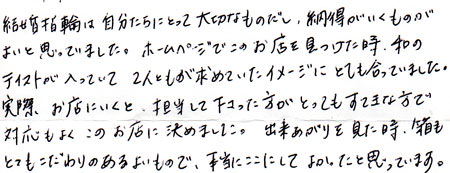 結婚指輪は自分たちにとって大切なものだし、納得がいくものが
よいと思っていました。ホームページでこのお店を見つけた時、和の
テイストが入っていて2人ともが求めていたイメージにとても合っていました。
実際、お店にいくと、担当して下さった方がとってもすてきな方で
対応もよくこのお店に決めました。出来あがりを見た時、箱も
とてもこだわりのあるよいもので、本当にここにしてよかったと思っています。